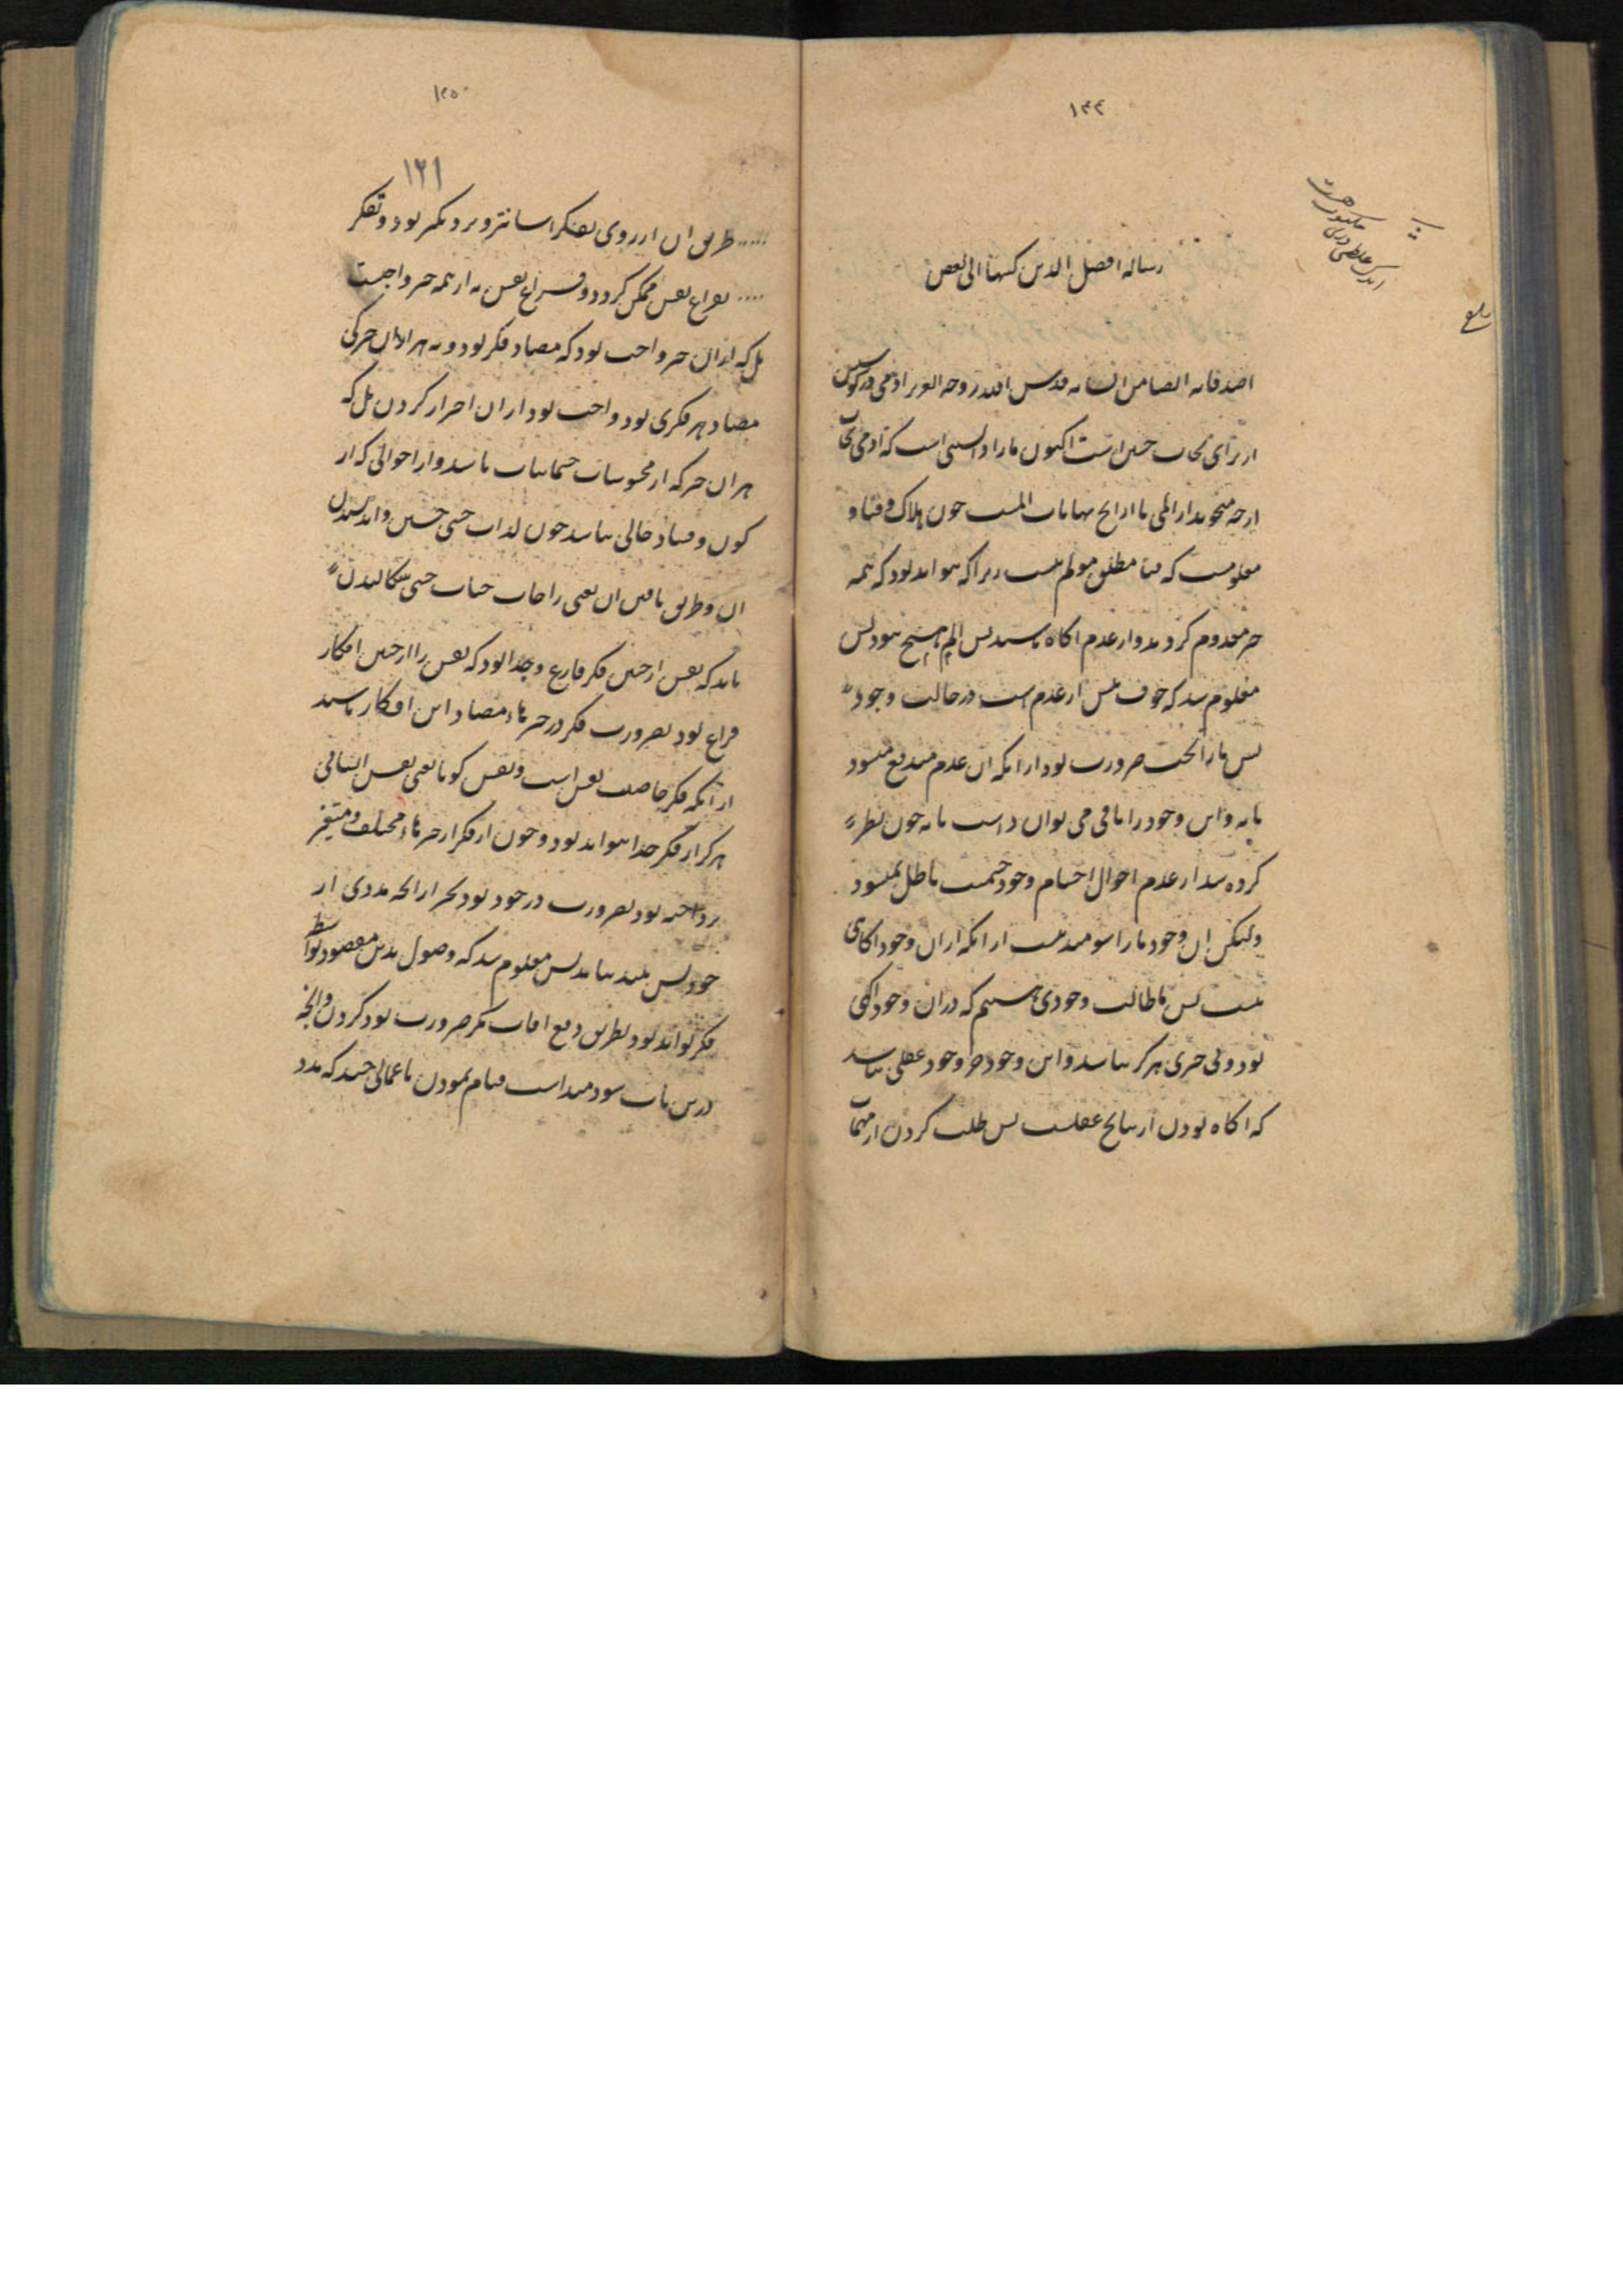 ۱۴۴
رساله افضل الدین کتبها الی بعض
اصدقائه ایضا من انشائه قدس الله روحه العزیز آدمی در کوشش
از برای نجات خویش است اکنون ما را دانستنی است که آدمی نجات
از چه میجوید از المی یا از رنج نهایات المست چون هلاک و فنا و
معلومست که فنا مطلق مولم نیست زیرا که نتواند بود که همه
چیز معدوم گردند و از عدم آگاه باشند پس الم هیچ نبود پس
معلوم شد که خوف نفس از عدم است در حالت وجود
پس ما را آنچت ضرورت بود از آنکه آن عدم مندفع میشود
یا نه و این وجود را باقی می توان داشت یا نه چون نظر
کرده شد از عدم احوال اجسام وجود جسمت باطل نمیشود
ولیکن آن وجود ما را سومند نیست از آنکه از آن وجود آگاهی
نیست پس ما طالب وجودی هستیم که در آن وجود آگهی
بود و بی خبری هرگز نباشد و این وجود جز وجود عقلی نباشد
که آگاه بودن از نتایج عقلست پس طلب کردن از مهمات
بلغ
۱۲۵
۱۲۱
طریق آن از روی تفکر آسانتر و نزدیکتر بود و تفکر
بفراغ نفس ممکن گردد و فراغ نفس نه از همه چیز واجبست
بل که از آن چیز واجب بود که مضاد فکر بود و نه هر آن چیز کی
مضاد هر فکری بود واجب بود از آن احتراز کردن بل که
هر آن چیز که از محسوسات جسمانیات باشد و از احوالی که از
کون و فساد خالی نباشد چون لذات حسی جستن و اندیشیدن
آن و طریق یافتن آن یعنی راحات حیات حسی سگالیدن
باید که نفس از چنین فکر فارغ و جدا بود که نفس را از چنین افکار
فراغ بود بضرورت فکر در چیزهاء مضاد این افکار باشد
از آنکه فکر خاصیت نفس است و نفس گویا یعنی نفس انسانی
هرگز از فکر جدا نتواند بود و چون از فکر از چیزهاء مختلف و متغیر
پرداخته بود بضرورت در خود بود بجز از آنچه مددی از
خود پس بلند نیابد پس معلوم شد که وصول بدین مقصود بواسطه
فکر تواند بود بطریق دفع آفات مگر ضرورت بود کردن و آنچه
درین باب سودمند است قیام نمودن باعمالی چند که مدد